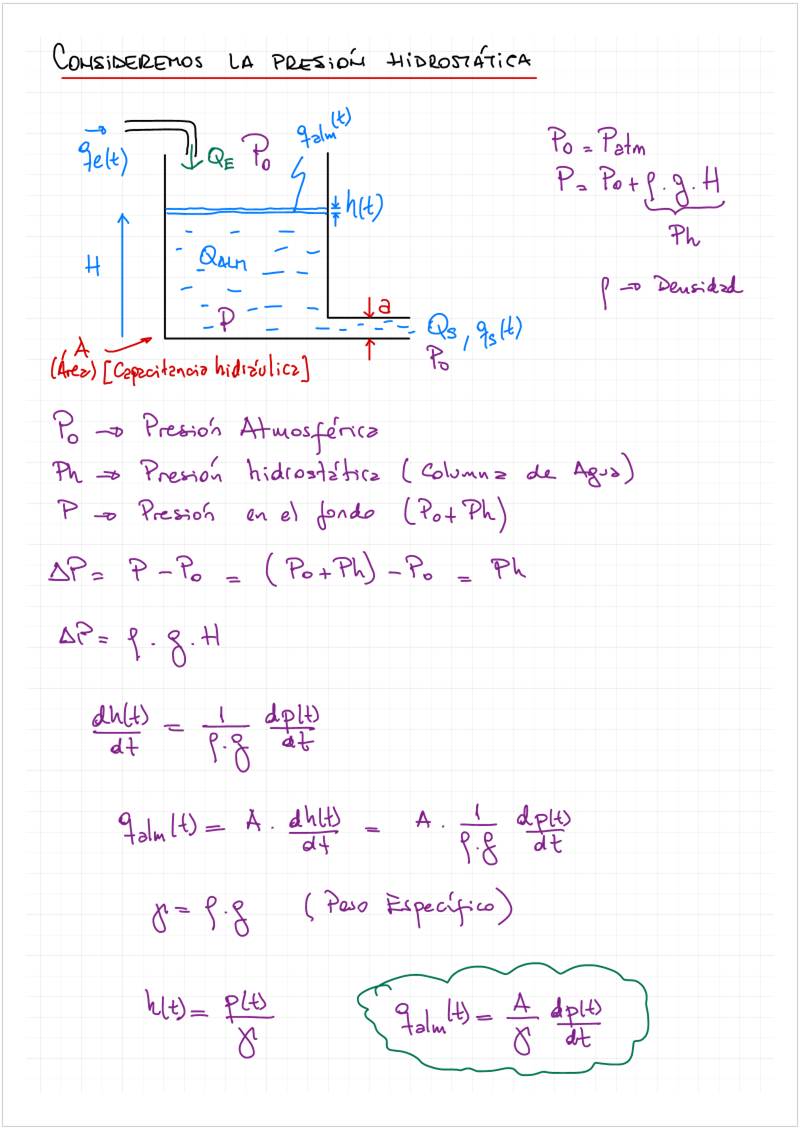 CONSIDEREMOS LA PRESIÓN HIDROSTÁTICA
qe(t)
QE
Po
qalm(t)
h(t)
H
QALM
P
a
Qs, qs(t)
Po
A
(Área) [Capacitancia hidráulica]
Po = Patm
P = Po + ρ.g.H
Ph
ρ → Densidad
Po → Presión Atmosférica
Ph → Presión hidrostática (Columna de Agua)
P → Presión en el fondo (Po+Ph)
ΔP = P - Po = (Po+Ph) - Po = Ph
ΔP = ρ . g . H
dh(t)/dt = 1/ρ.g dp(t)/dt
qalm(t) = A . dh(t)/dt = A . 1/ρ.g dp(t)/dt
γ = ρ.g (Peso Específico)
h(t) = p(t)/γ
qalm(t) = A/γ dp(t)/dt